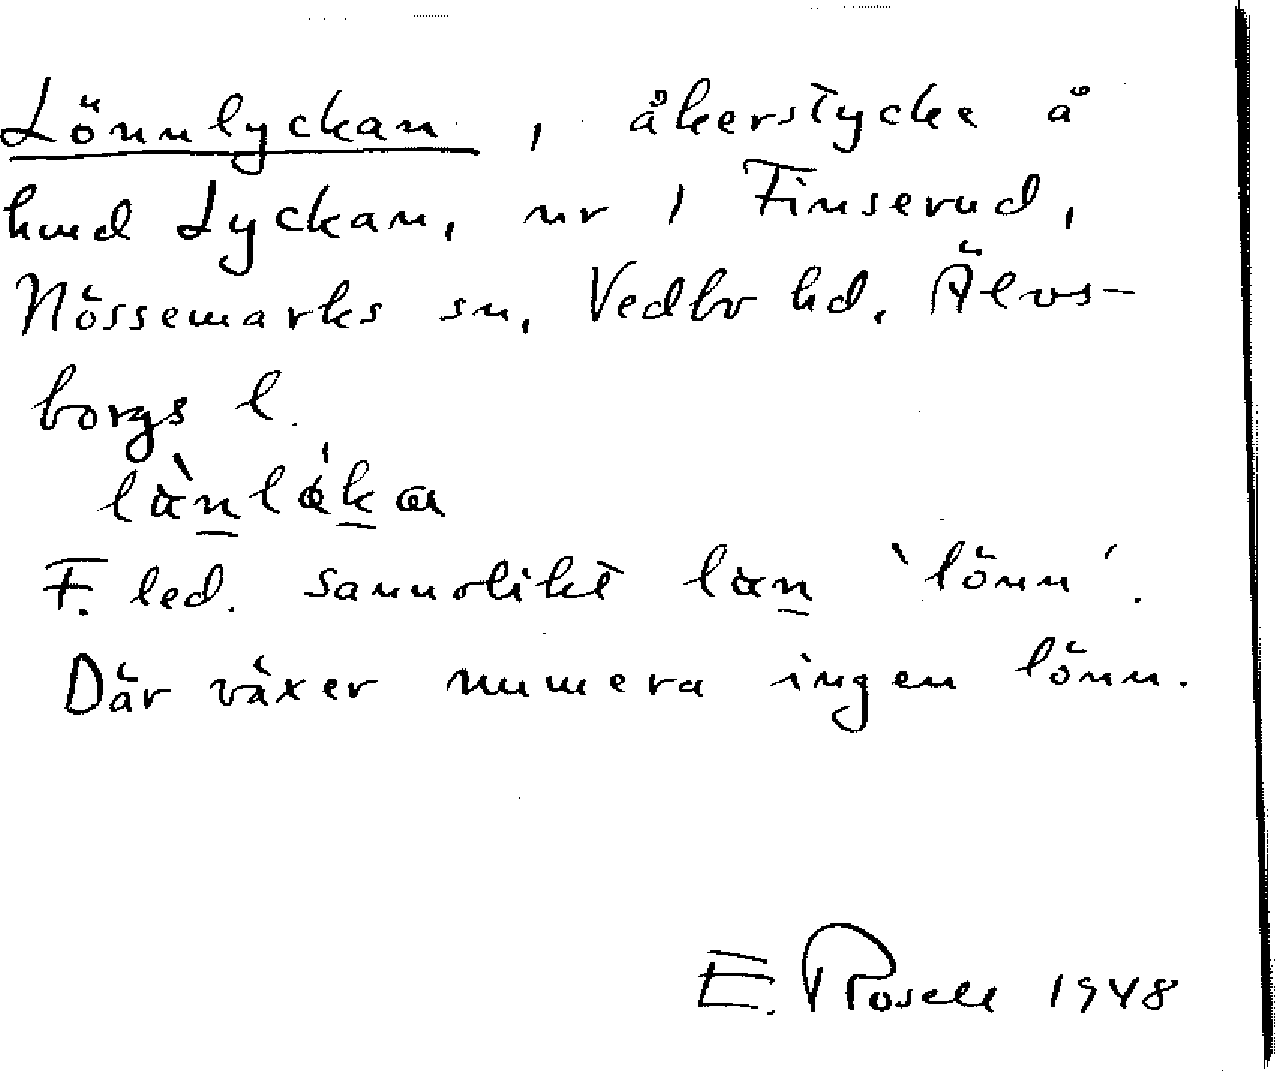 Lönnlyckan, åkerstycke å
hmd Lyckan, nr 1 Finserud,
Nössemarks sn, Vedbo hd, Älvs-
borgs l.
F. led. sannolikt 'lönn'.
Där växer numera ingen lönn.
E. Rosell 1948